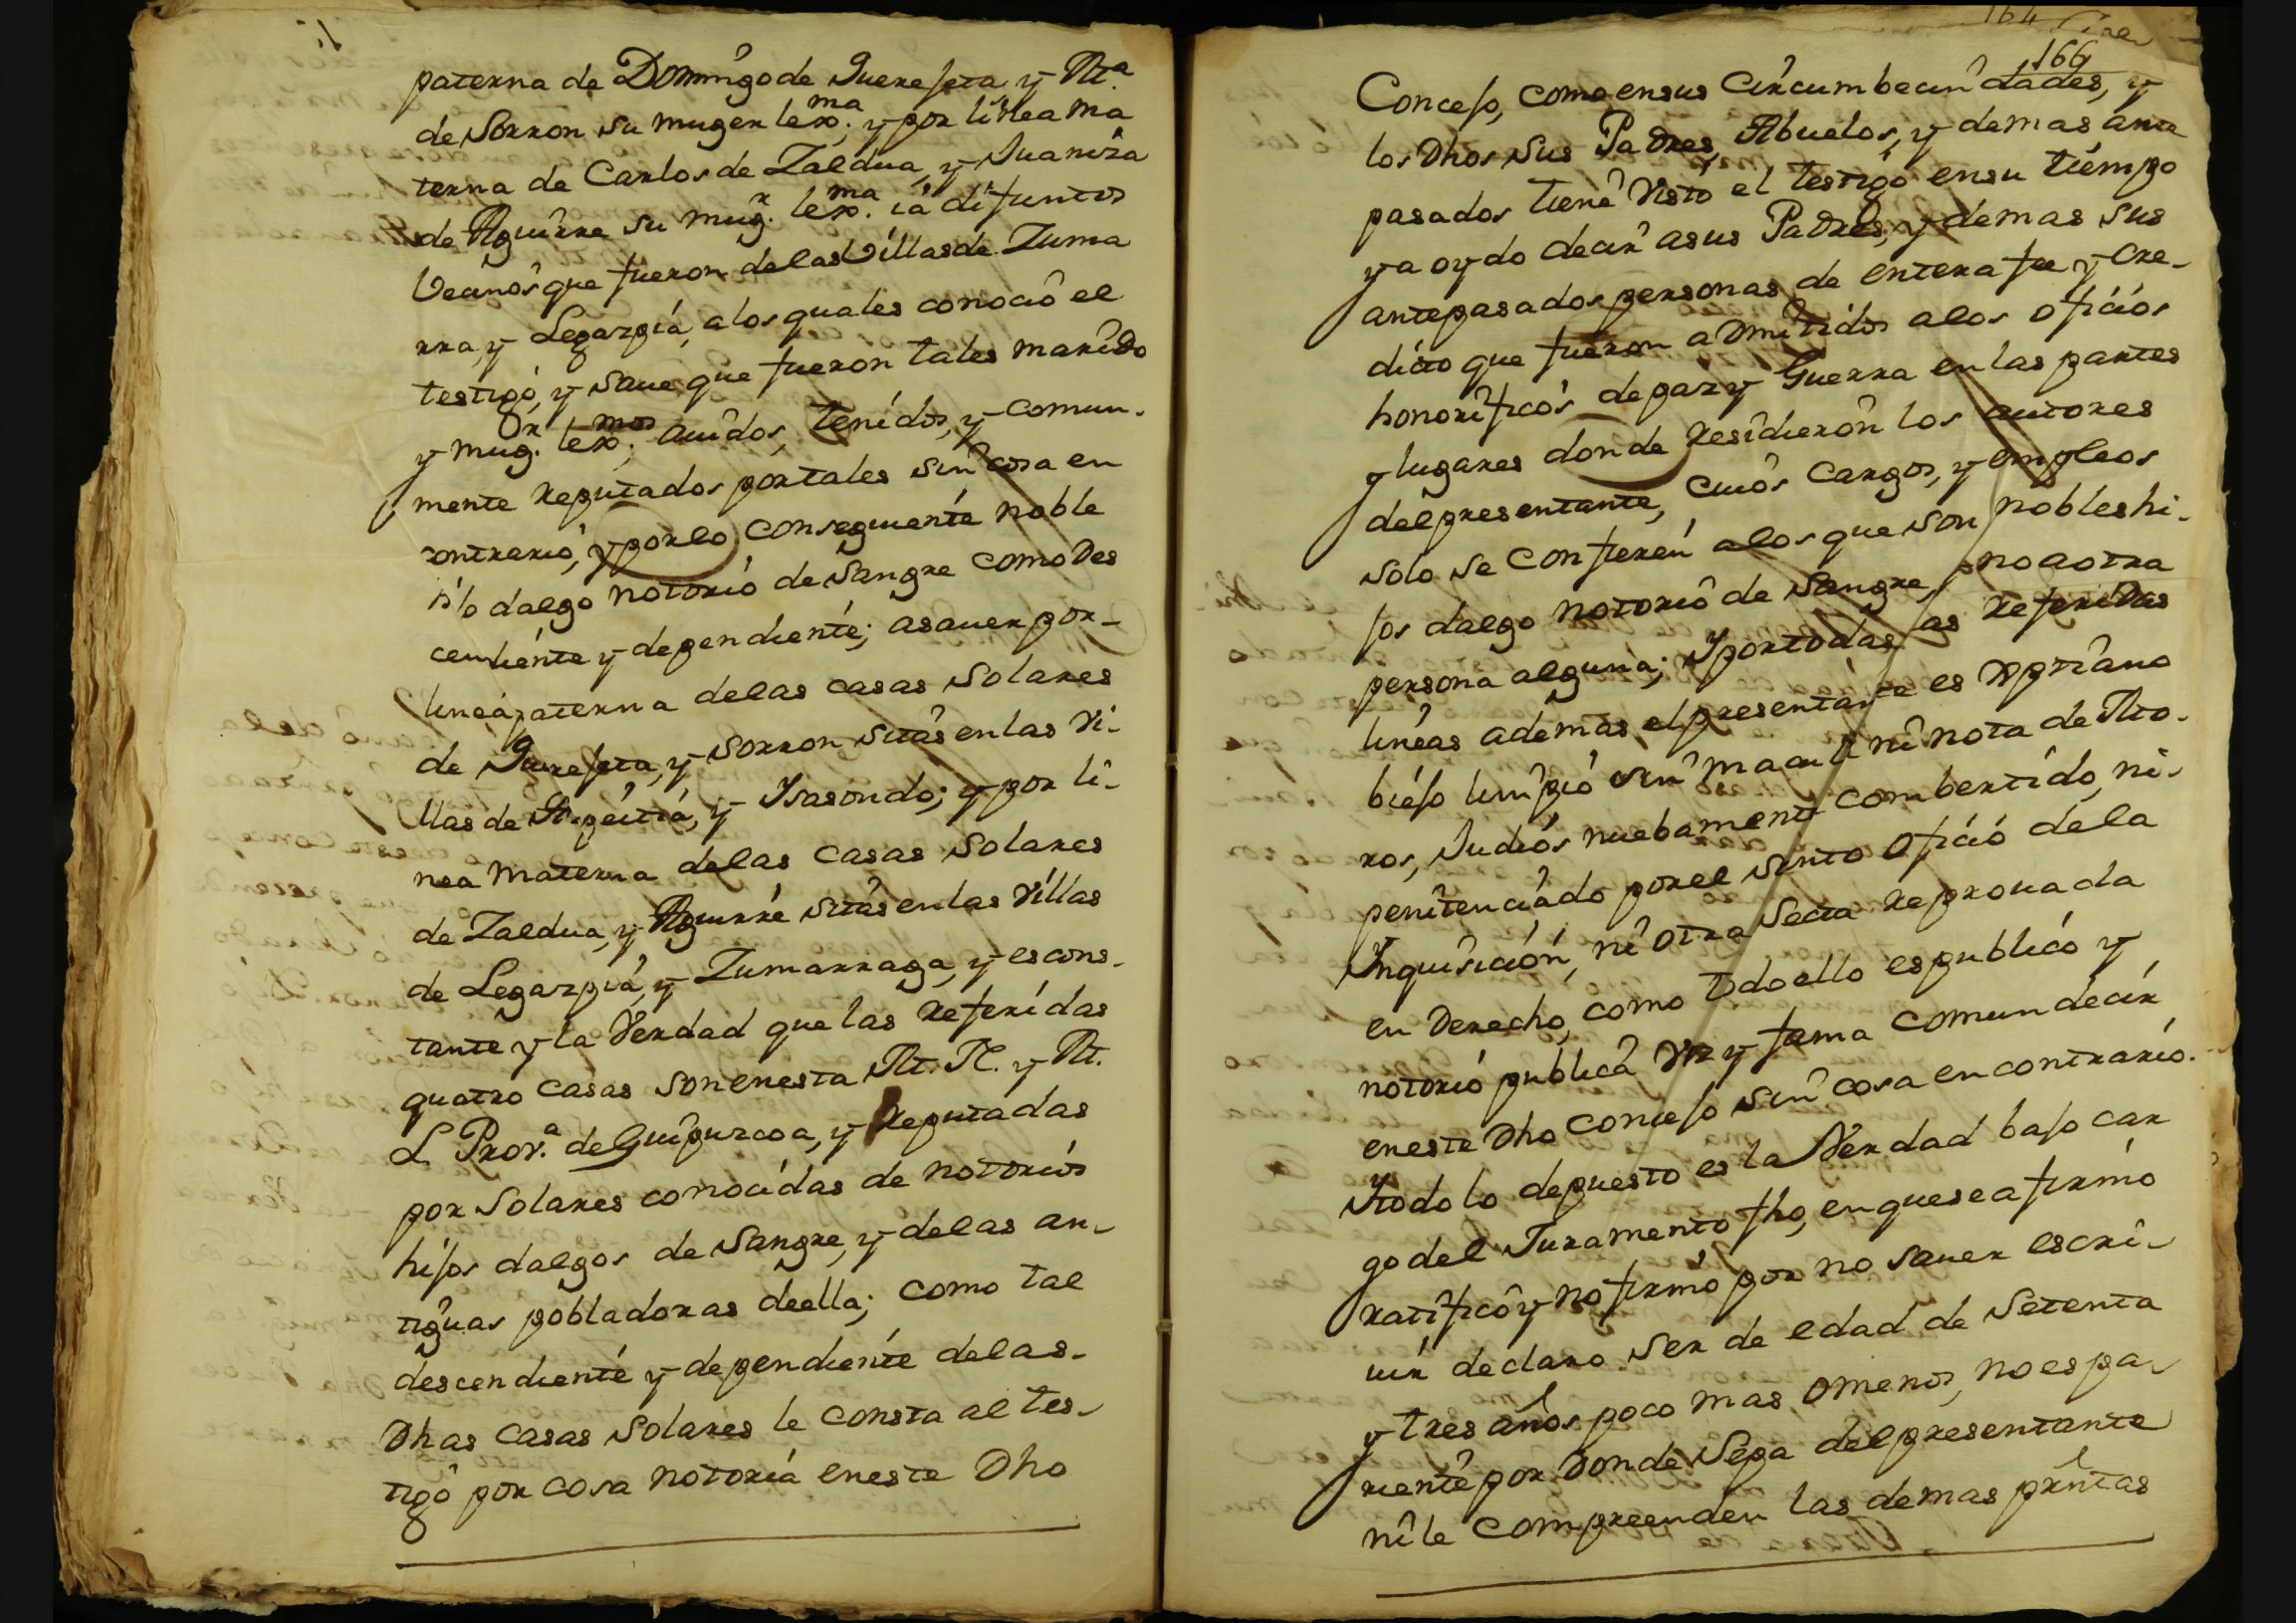 paterna de Domingo de Guerejeta y M.ª
de Sorron su muger lex.ma y por linea ma
terna de Carlos de Zaldua, y Juaniza
de Aguirre su mug.r lex.ma iá difuntos
Vecinos que fueron de las Villas de Zuma
rra, y Legazpia, a los quales conoció el
testigo, y saue que fueron tales marido
y mug.r lex.mos auidos, tenidos, y comun-
mente reputados por tales sin cosa en
contrario, y por lo conseguiente noble
hijo dalgo notorio de Sangre como Des
cendiente y dependiente; a sauer por-
linea paterna de las casas Solares
de Guerejeta, y Sorron sitas en las Vi-
llas de Azpeitia, y Ysasondo; y por li-
nea materna de las casas Solares
de Zaldua, y Aguirre sitas en las Villas
de Legazpia, y Zumarraga, y es cons-
tante y la Verdad que las referidas
quatro casas son en esta M. N. y M.
L Prov.ª de Guipuzcoa, y reputadas
por Solares conocidas de notorios
hijos dalgos de Sangre, y de las an-
tiguas pobladoras de ella; como tal
descendiente y dependiente de las-
Dhas casas Solares le consta al tes-
tigo por cosa notoria en este Dho
164
166
Concejo, como en sus Circumbecindades, y
los Dhos sus Padres, Abuelos, y demas ante
pasados tiene Visto el testigo en su tiempo
y a oydo decir a sus Padres, y demas sus
antepasados personas de entera fee y cre-
dito que fueron admitidos a los oficios
honorificos de paz y Guerra en las partes
y lugares donde residieron los autores
del presentante, cuios cargos, y empleos
solo se confieren a los que son nobles hi-
jos dalgo notorio de Sangre, y no a otra
persona alguna; Y por todas las referidas
lineas ademas el presentante es Xptiano
biejo limpio sin macula ni nota de Mo-
ros, Judios nuebamente combertido, ni-
penitenciado por el Santo Oficio de la
Inquisicion, ni otra Secta reprouada
en Derecho, como todo ello es publico y
notorio publica Voz y fama comun decir
en este Dho Concejo sin cosa en contrario.
Y todo lo depuesto es la Verdad bajo car
go del Juramento fho, en que se afirmó
ratificó y no firmó por no sauer escri-
uir declaro ser de edad de Setenta
y tres años poco mas, o menos, no es pa-
riente por donde Sepa del presentante
ni le compreenden las demas prntas